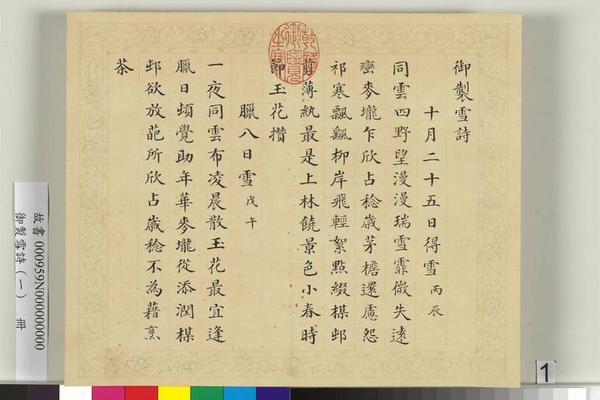 御製雪詩
十月二十五日得雪丙辰
同雲四野望漫漫瑞雪霏微失遠
巒麥壠乍欣占稔歲茅檐還慮怨
祁寒飄飄柳岸飛輕絮點綴楳邨
剪薄紈最是上林饒景色小春時
節玉花攢
臘八日雪戊午
一夜同雲布凌晨散玉花最宜逢
臘日頓覺助年華麥壠從添潤楳
邨欲放葩所欣占歲稔不為藉烹
茶
乾隆御覽之寶
故書000959N000000000
御製雪詩(一) 冊
1